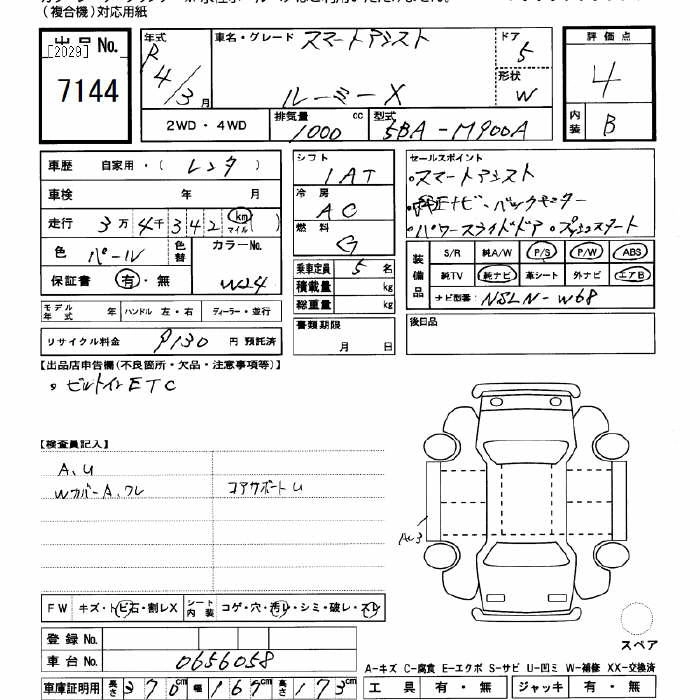 (複合機)対応用紙
出品No.
[2029]
7144
年式 R4/3月
車名・グレード スマートアシスト
ルーミー X
ドア 5
形状 W
2WD・4WD
排気量 1000 cc
型式 5BA-M900A
評価点
4
内装 B
車歴 自家用・(レンタ)
車検 年 月
走行 3万4千342 km マイル ( )
色 パール 色替 カラーNo. W24
保証書 有・無
シフト 1AT
冷房 AC
燃料 G
乗車定員 5名
積載量 kg
総重量 kg
セールスポイント
・スマートアシスト
・純正ナビ・バックモニター
・パワースライドドア・プッシュスタート
装備品 S/R 純A/W P/S P/W ABS
純TV 純ナビ 革シート 外ナビ エアB
ナビ型番 NSLN-W68
モデル年式 年 ハンドル 左・右 ディーラー・並行
リサイクル料金 9130 円 預託済
書類期限
月 日
後日品
【出品店申告欄(不良箇所・欠品・注意事項等)】
・ビルトインETC
【検査員記入】
A、U
Wカバー A、ワレ コアサポート U
AU3
FW キズ・トビ石・割レX シート内装 コゲ・穴・汚レ・シミ・破レ・スレ
登録No.
車台No. 0656058
車庫証明用 長さ 370cm 幅 167cm 高さ 173cm
スペア
A-キズ C-腐食 E-エクボ S-サビ U-凹ミ W-補修 XX-交換済
工具 有・無 ジャッキ 有・無